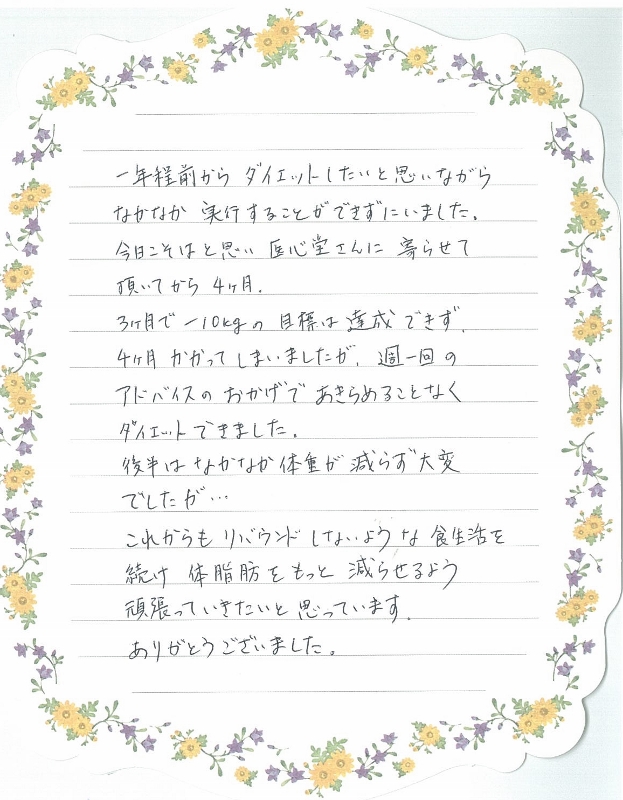 一年程前から ダイエットしたいと思いながら
なかなか 実行することができずにいました。
今日こそはと思い 匠心堂さんに 寄らせて
頂いてから 4ヶ月.
3ヶ月で −10kgの 目標は 達成できず.
4ヶ月 かかってしまいましたが, 週一回の
アドバイスの おかげで あきらめることなく
ダイエットできました.
後半は なかなか 体重が 減らず 大変
でしたが…
これからも リバウンド しないような 食生活を
続け 体脂肪を もっと 減らせるよう
頑張っていきたいと 思っています.
ありがとうございました.